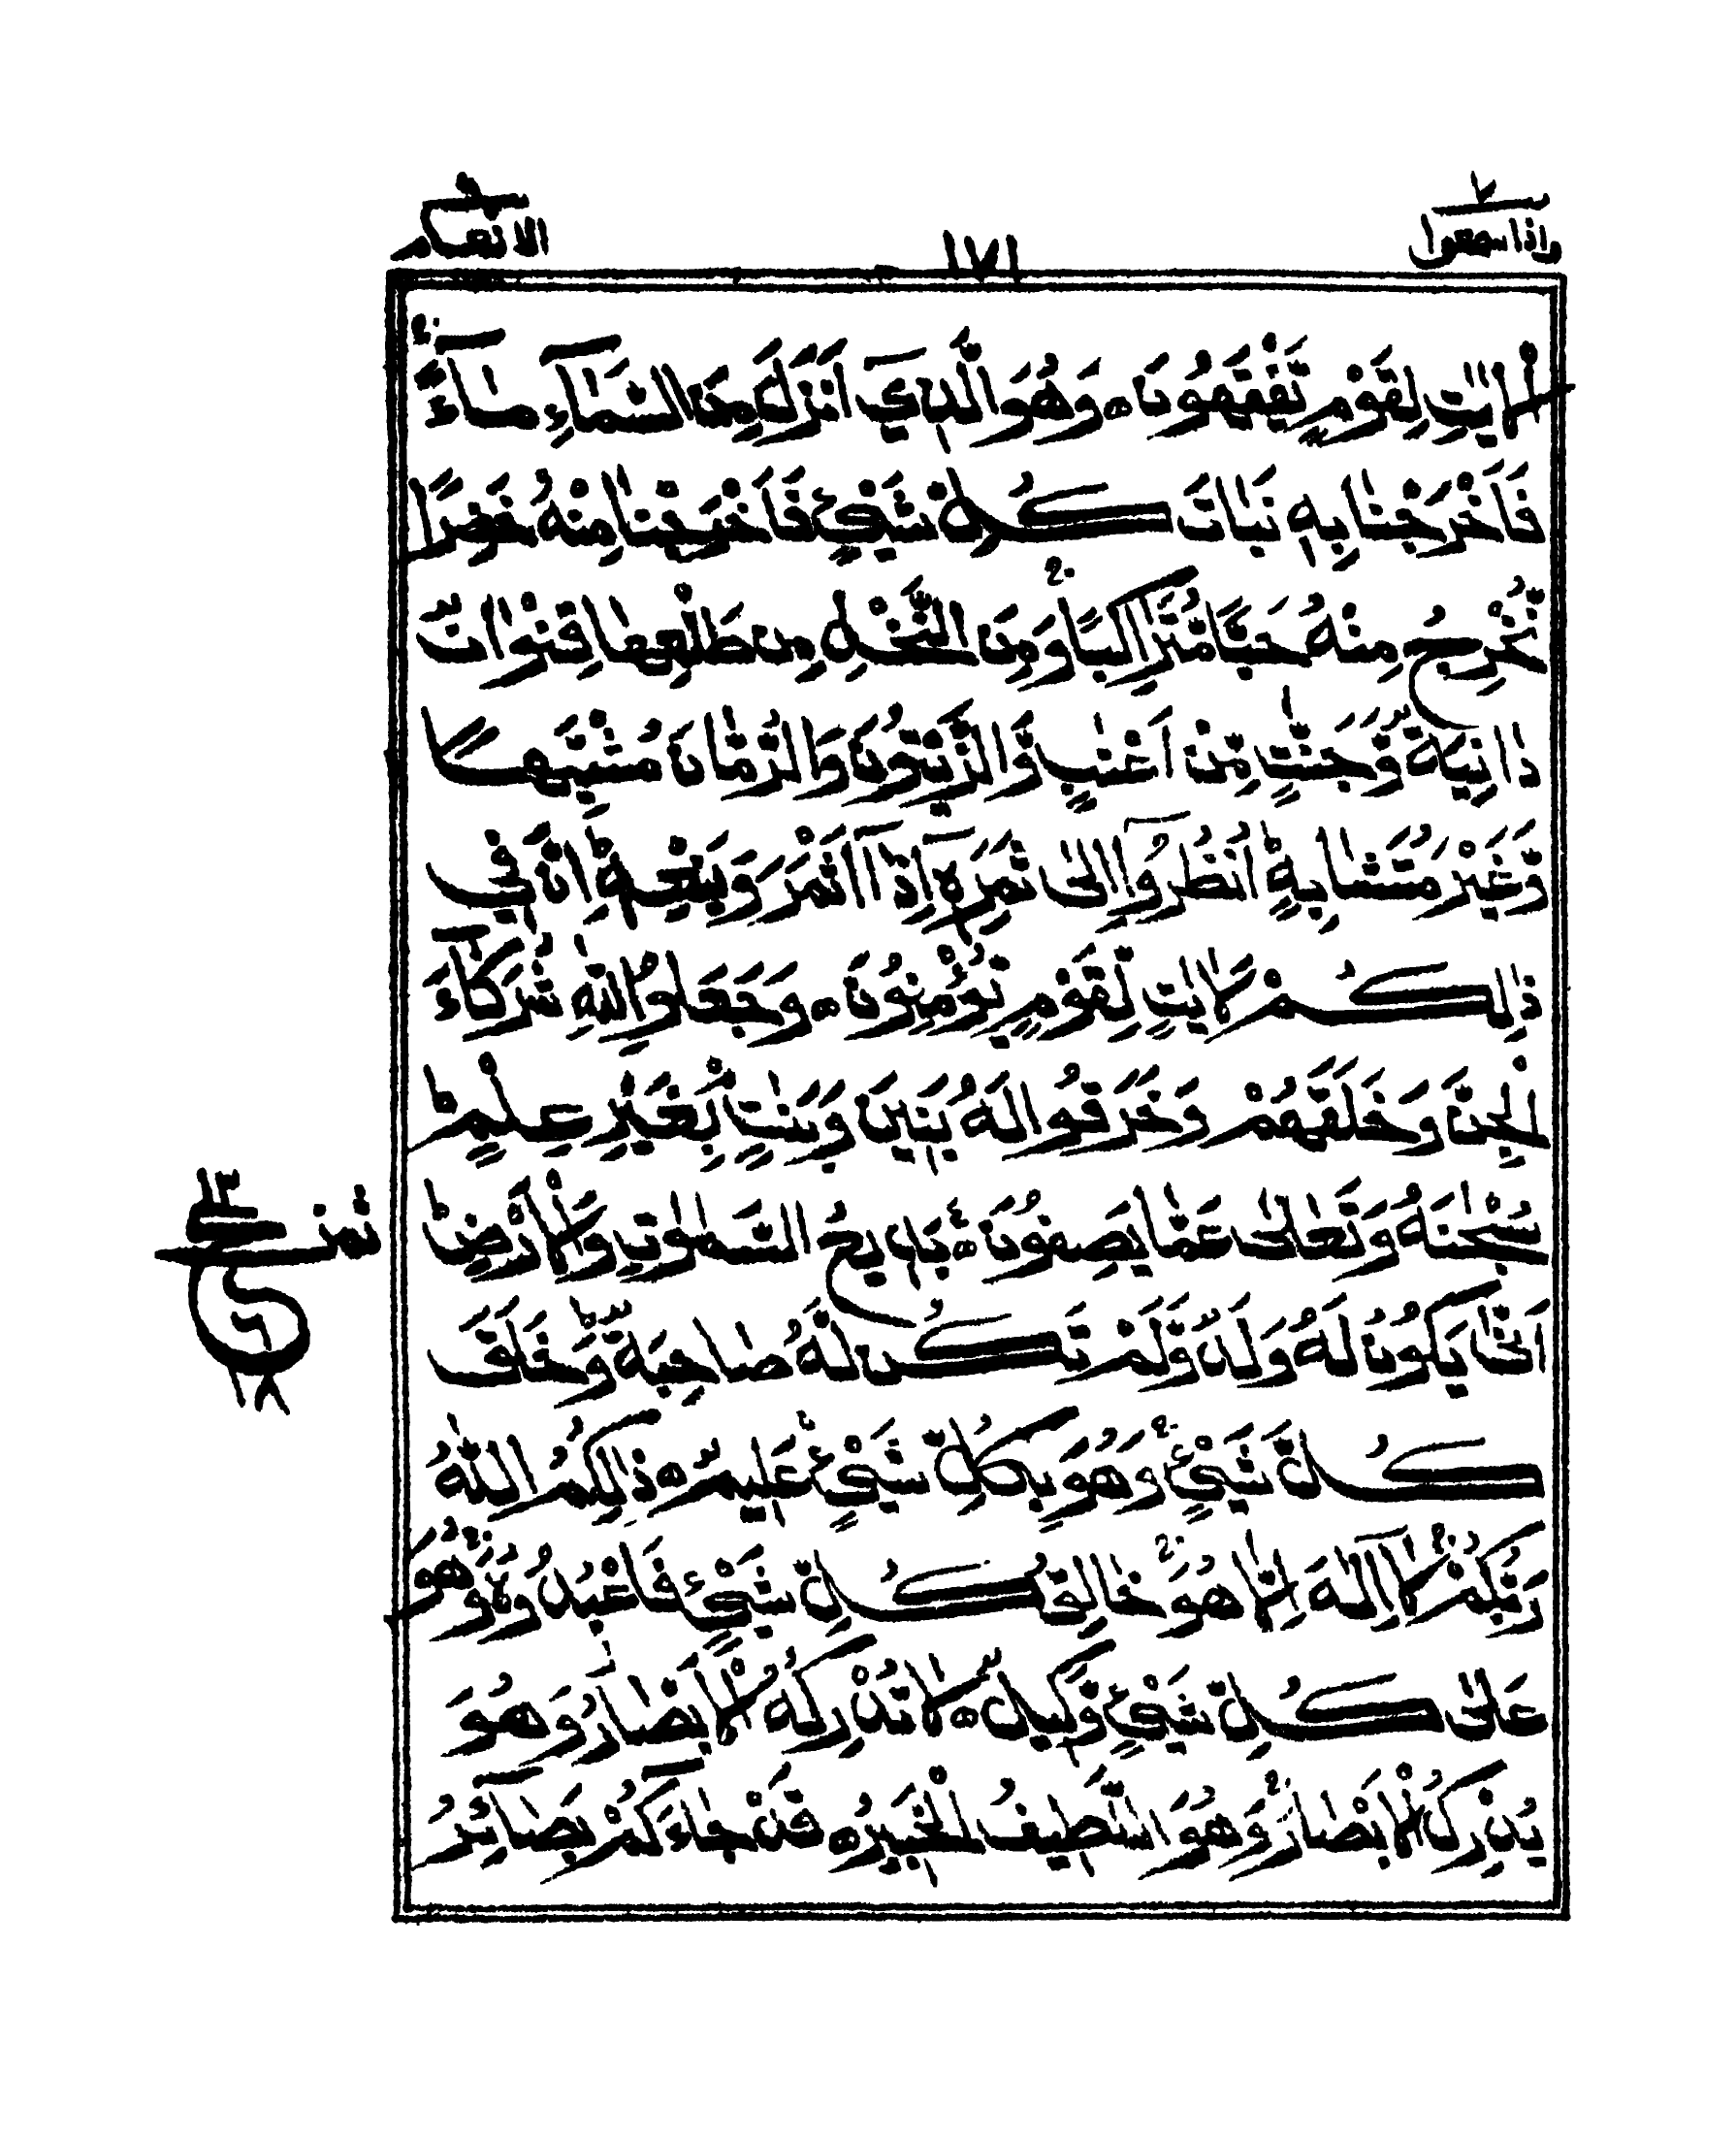 واذا سمعوا ٧
١٧١
الانعام ٦
الْاٰيٰتِ لِقَوْمٍ يَّفْقَهُوْنَ ه وَهُوَ الَّذِيْٓ اَنْزَلَ مِنَ السَّمَآءِ مَآءً
فَاَخْرَجْنَا بِهٖ نَبَاتَ كُلِّ شَيْءٍ فَاَخْرَجْنَا مِنْهُ خَضِرًا
نُّخْرِجُ مِنْهُ حَبًّا مُّتَرَاكِبًا وَمِنَ النَّخْلِ مِنْ طَلْعِهَا قِنْوَانٌ
دَانِيَةٌ وَّجَنّٰتٍ مِّنْ اَعْنَابٍ وَّالزَّيْتُوْنَ وَالرُّمَّانَ مُشْتَبِهًا
وَّغَيْرَ مُتَشَابِهٍ ط اُنْظُرُوْٓا اِلٰى ثَمَرِهٖٓ اِذَآ اَثْمَرَ وَيَنْعِهٖ ط اِنَّ فِيْ
ذٰلِكُمْ لَاٰيٰتٍ لِّقَوْمٍ يُّؤْمِنُوْنَ ه وَجَعَلُوْا لِلّٰهِ شُرَكَآءَ
الْجِنَّ وَخَلَقَهُمْ وَخَرَقُوْا لَهٗ بَنِيْنَ وَبَنٰتٍ بِغَيْرِ عِلْمٍ ط
سُبْحٰنَهٗ وَتَعٰلٰى عَمَّا يَصِفُوْنَ ه بَدِيْعُ السَّمٰوٰتِ وَالْاَرْضِ ط
اَنّٰى يَكُوْنُ لَهٗ وَلَدٌ وَّلَمْ تَكُنْ لَّهٗ صَاحِبَةٌ ط وَخَلَقَ
كُلَّ شَيْءٍ وَهُوَ بِكُلِّ شَيْءٍ عَلِيْمٌ ه ذٰلِكُمُ اللّٰهُ
رَبُّكُمْ لَآ اِلٰهَ اِلَّا هُوَ خَالِقُ كُلِّ شَيْءٍ فَاعْبُدُوْهُ وَهُوَ
عَلٰى كُلِّ شَيْءٍ وَّكِيْلٌ ه لَا تُدْرِكُهُ الْاَبْصَارُ وَهُوَ
يُدْرِكُ الْاَبْصَارَ وَهُوَ اللَّطِيْفُ الْخَبِيْرُ ه قَدْ جَآءَكُمْ بَصَآئِرُ
ثمن
١٨